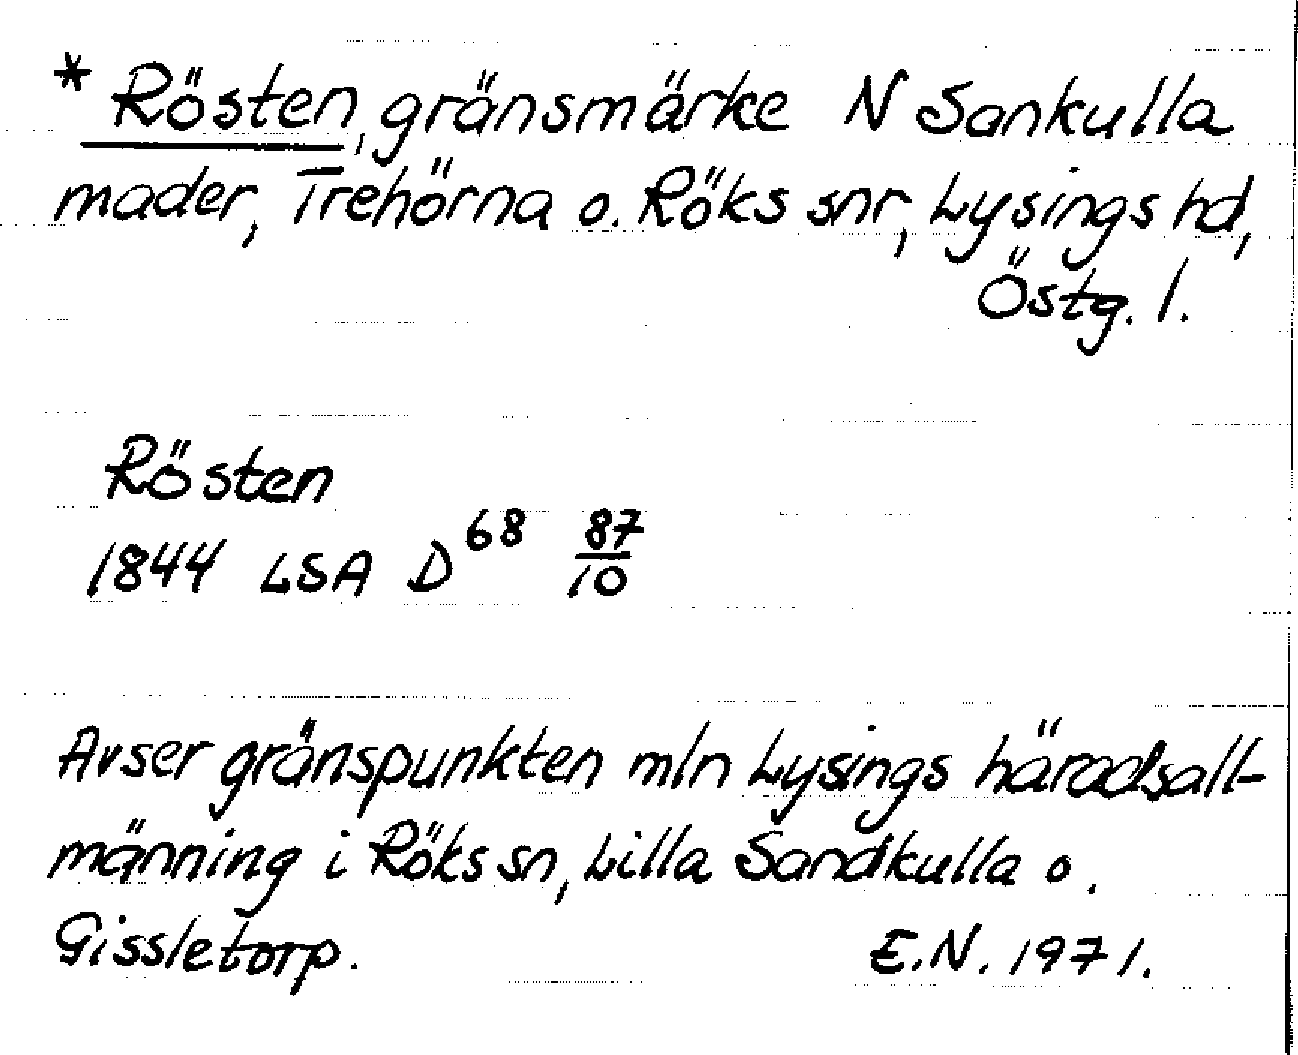 * Rösten, gränsmärke N Sankulla
mader, Trehörna o. Röks snr, Lysings hd,
Östg. l.
Rösten
1844 LSA D⁶⁸ 87/10
Avser gränspunkten mln Lysings häradsall-
männing i Röks sn, Lilla Sandkulla o.
Gissletorp. E.N. 1971.